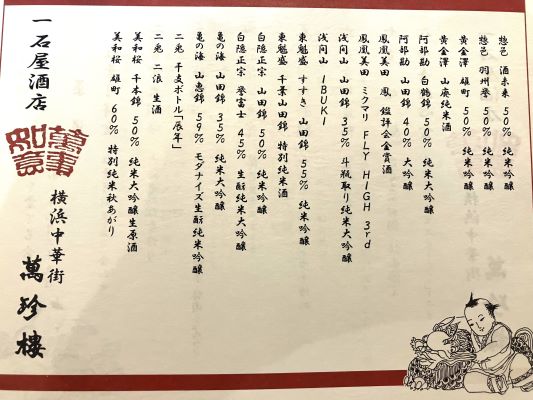 惣邑 酒未来 50% 純米吟醸
惣邑 羽州誉 50% 純米吟醸
黄金澤 雄町 50% 純米吟醸
黄金澤 山廃純米酒
阿部勘 白鶴錦 50% 純米吟醸
阿部勘 山田錦 40% 大吟醸
鳳凰美田 鳳 鑑評会金賞酒
鳳凰美田 ミクマリ FLY HIGH 3rd
浅間山 山田錦 35% 斗瓶取り純米大吟醸
浅間山 IBUKI
東魁盛 すすき 山田錦 55% 純米吟醸
東魁盛 千葉山田錦 特別純米酒
白隠正宗 山田錦 50% 純米吟醸
白隠正宗 誉富士 45% 生酛純米大吟醸
亀の海 山田錦 35% 純米大吟醸
亀の海 山恵錦 59% モダナイズ生酛純米吟醸
二兎 干支ボトル「辰年」
二兎 二浪 生酒
美和桜 千本錦 50% 純米大吟醸生原酒
美和桜 雄町 60% 特別純米秋あがり
一石屋酒店
萬事
如意
横浜中華街
萬珍樓